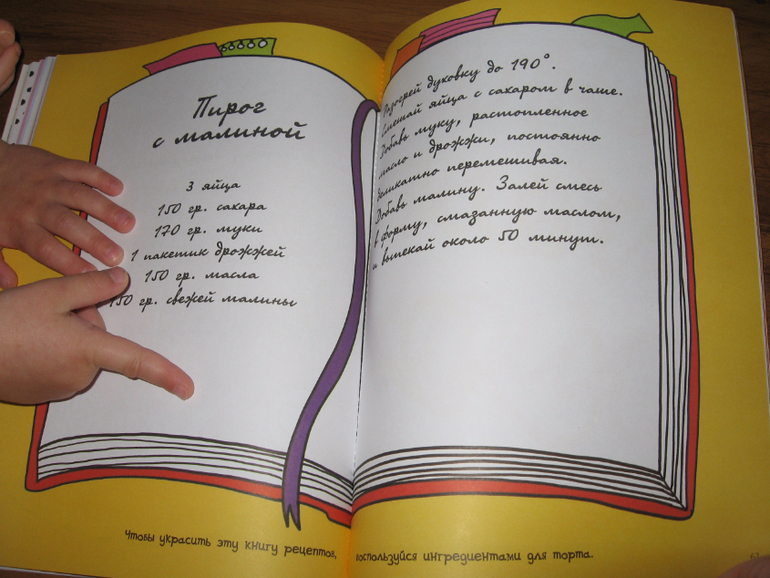 Пирог
с малиной
3 яйца
150 гр. сахара
170 гр. муки
1 пакетик дрожжей
150 гр. масла
150 гр. свежей малины
Разогрей духовку до 190°.
Смешай яйца с сахаром в чаше.
Добавь муку, растопленное
масло и дрожжи, постоянно
деликатно перемешивая.
Добавь малину. Залей смесь
в форму, смазанную маслом,
и выпекай около 50 минут.
Чтобы украсить эту книгу рецептов, воспользуйся ингредиентами для торта.